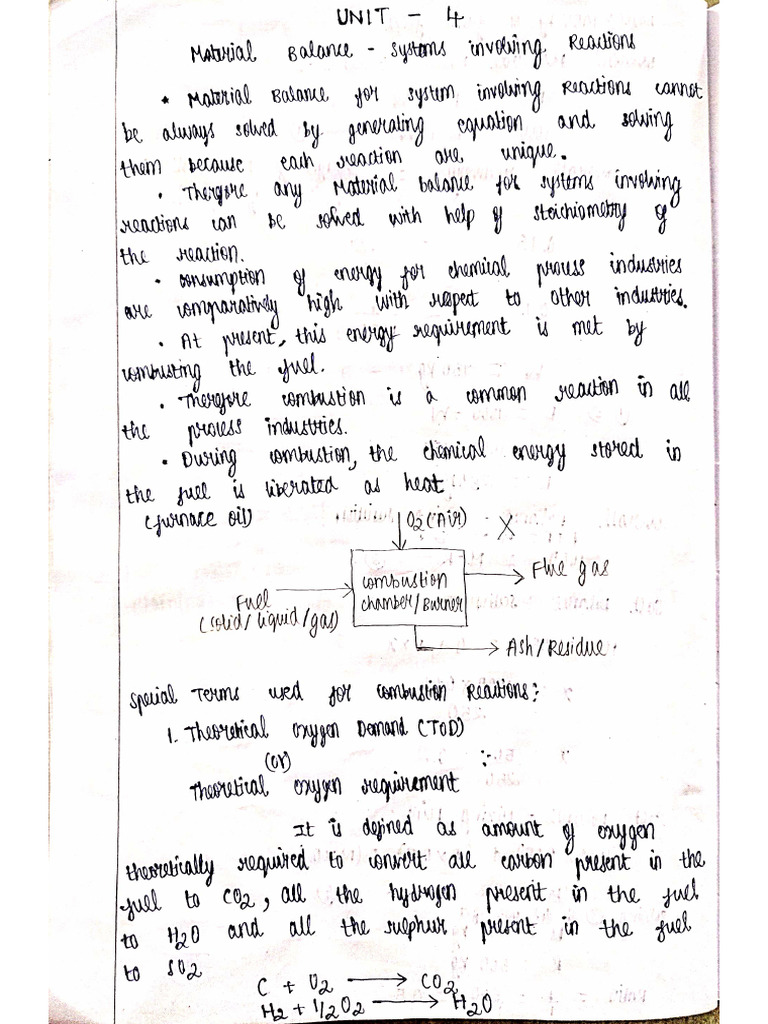 UNIT - 4
Material Balance - Systems involving Reactions
* Material Balance for system involving Reactions cannot
be always solved by generating equation and solving
them because each reaction are unique.
• Therfore any Material balance for systems involving
reactions can be solved with help of stoichiometry of
the reaction.
• consumption of energy for chemical prouss industries
are comparatively high with respect to other industries.
• At present, this energy requirement is met by
combusting the fuel.
• Therfore combustion is a common reaction in all
the process industries.
• During combustion, the chemical energy stored in
the fuel is liberated as heat.
(furnace oil)
O2 (Air) X
combustion
chamber/Burner
Flue gas
Fuel
(solid/liquid/gas)
Ash/Residue
Special Terms used for combustion Reactions:
1. Theoretical oxygen Demand (TOD)
(or)
Theoretical oxygen requirement
It is defined as amount of oxygen
theoretically required to convert all carbon present in the
fuel to CO2, all the hydrogen present in the fuel
to H2O and all the sulphur present in the fuel
to SO2
C + O2 → CO2
H2 + 1/2O2 → H2O